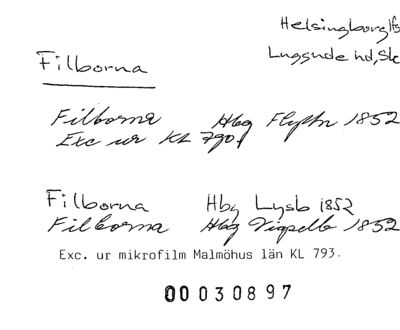 Helsingborg lfs
Filborna
Luggude hd, Sk
Filborna Hbg Flyttn 1852
Exc ur KL 790,
Filborna Hbg Lysb 1852
Filborna Hbg Vigselb 1852
Exc. ur mikrofilm Malmöhus län KL 793.
00030897